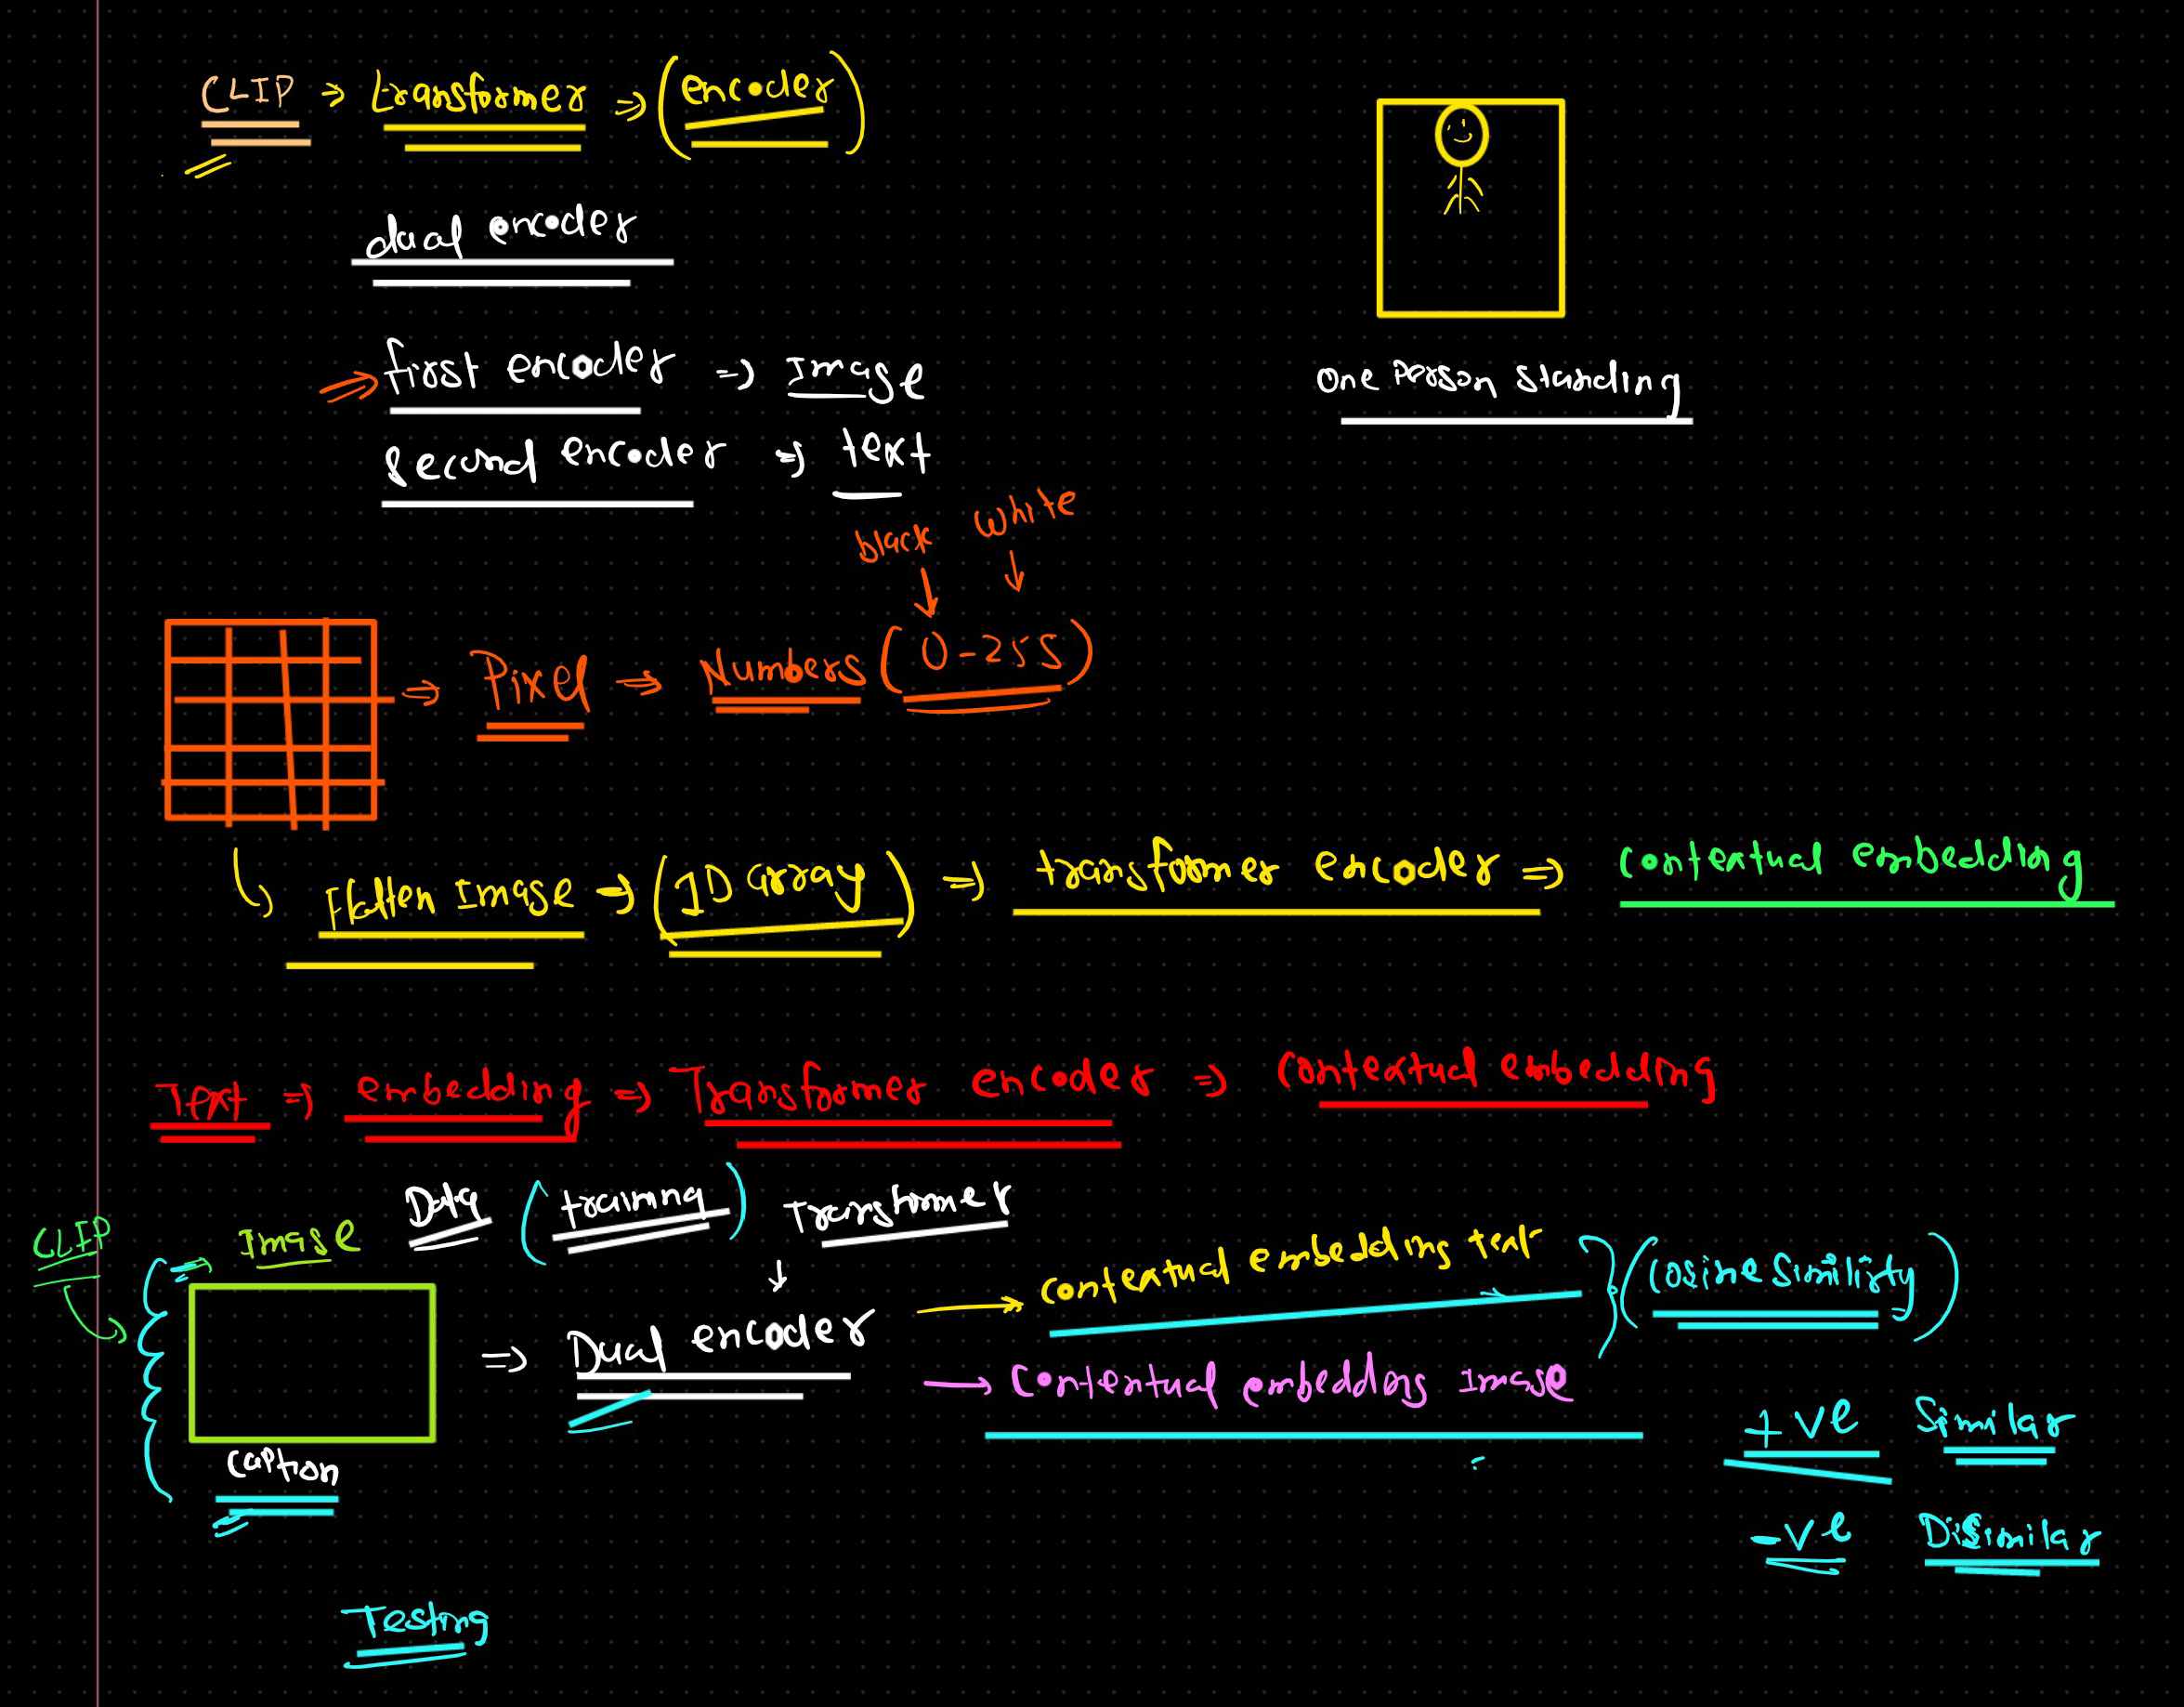 CLIP => transformer => (encoder)
dual encoder
first encoder => Image
second encoder => text
One Person Standing
black white
=> Pixel => Numbers (0-255)
Flatten Image → (1D array) => transformer encoder => contextual embedding
Text => embedding => Transformer encoder => contextual embedding
CLIP
Image
Data (training) Transformer
=> Dual encoder
→ contextual embedding text
→ contextual embedding image
(cosine similirty)
caption
+ve Similar
-ve Disimilar
Testing